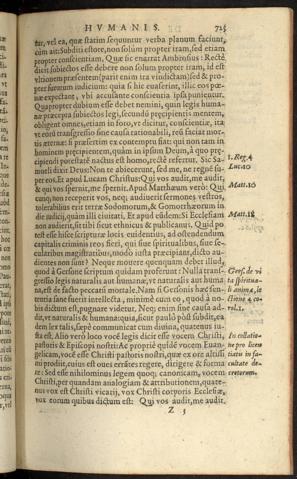 HVMANIS.
tur, vel ea, quæ statim sequuntur verba planum faciunt,
cùm ait: Subditi estote, non solùm propter iram, sed etiam
propter conscientiam. Quæ sic enarrat Ambrosius: Rectè
dixit subiectos esse debere non solum propter iram, id est
vltionem præsentem (parit enim ira vindictam) sed & pro-
pter futurum iudicium: quia si hic euaserint, illic eos pœ-
næ expectant, vbi accusante conscientia ipsa punientur.
Quapropter dubium esse debet nemini, quin legis huma-
næ præcepta subiectos legi, secundũ præcipientis mentem,
obligent omnes, etiam in foro, vt dicitur, conscientiæ, ita
vt eorũ transgressio sine causa rationabili, reũ faciat mor-
tis æternæ: si præsertim ex contemptu fiat: qui non tam in
hominem præcipientem, quàm in ipsum Deum, à quo præ-
cipiendi potestatē nactus est homo, rectè refertur. Sic Sa-
mueli dixit Deus: Non te abiecerunt, sed me, ne regnē su-
per eos. Et apud Lucam Christus: Qui vos audit, me audit,
& qui vos spernit, me spernit. Apud Matthæum verò: Qui
cunq; non receperit vos, neq; audierit sermones vestros,
tolerabilius erit terræ Sodomorum, & Gomorrhæorum in
die iudicij, quàm illi ciuitati. Et apud eũdem: Si Ecclesiam
non audierit, sit tibi sicut ethnicus & publicanus. Quid po-
test esse hisce scripturæ locis euidentius, ad ostendendum
capitalis criminis reos fieri, qui siue spiritualibus, siue se-
cularibus magistratibus, modò iusta præcipiant, dicto au-
dientes non sunt? Neque mouere quenquam debet illud,
quod à Gersone scriptum quidam proferunt: Nulla trans-
gressio legis naturalis aut humanæ, vt naturalis aut huma
na, est de facto peccati mortale. Nam si Gersonis hæc sen-
tentia
dit, vt naturalis & humana: quia, sicut paulò pòst subdit, ea
dem lex talis, sæpè communicat cum diuina, quatenus iu-
sta est. Alio verò loco vocē legis dicit esse vocem Christi,
pastoris & Episcopi nostri: Ac propriè quidē vocem Euan-
gelicam, vocē esse Christi pastoris nostri, quæ ex ore altissi
mi prodiit, cuius est oues errātes regere, dirigere & forma
re: Sed esse nihilominus legem quoq; canonicam, vocem
Christi, per quandam analogiam & attributionem, quate-
nus vox est Christi vicarij, vox Christi corporis Ecclesiæ,
vox eorum quibus dictum est: Qui vos audit, me audit.
Z 5
1. Reg. 4
Luc. 10
Matt. 10
Matt. 18
Gers. de vi
ta spiritua-
li animæ,
In
ne pro licen
tiatu in fa-
cultate de-
cretorum.